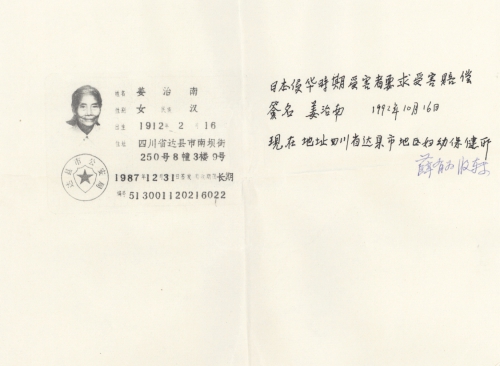 姓名 姜治南
性别 女 民族 汉
出生 1912年 2月16
住址 四川省达县市南坝街
250号8幢3楼9号
1987年12月31日签发 有效期限 长期
编号 513001120216022
达县市公安局
日本侵华时期受害者要求受害赔偿
签名 姜治南 1992年10月16日
现在地址四川省达县市地区妇幼保健所